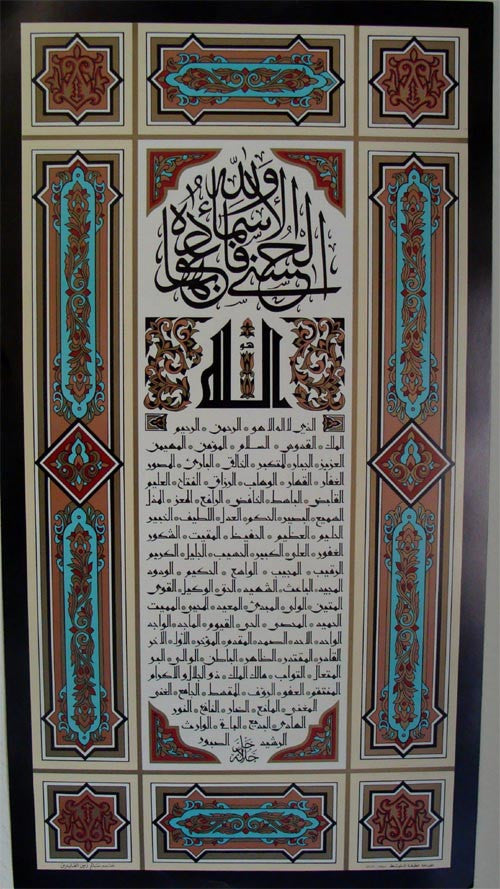 ولله الأسماء الحسنى فادعوه بها
الله
الذي لا اله الا هو * الرحمن * الرحيم
الملك * القدوس * السلام * المؤمن * المهيمن
العزيز * الجبار * المتكبر * الخالق * البارئ * المصور
الغفار * القهار * الوهاب * الرزاق * الفتاح * العليم
القابض * الباسط * الخافض * الرافع * المعز * المذل
السميع * البصير * الحكم * العدل * اللطيف * الخبير
الحليم * العظيم * الحفيظ * المقيت * الشكور
الغفور * العلي * الكبير * الحسيب * الجليل * الكريم
الرقيب * المجيب * الواسع * الحكيم * الودود
المجيد * الباعث * الشهيد * الحق * الوكيل * القوي
المتين * الولي * المبدئ * المعيد * المحيي * المميت
الحميد * المحصي * الحي * القيوم * الماجد * الواجد
الواحد * الاحد * الصمد * المقدم * المؤخر * الأول * الآخر
القادر * المقتدر * الظاهر * الباطن * الوالي * البر
المتعال * التواب * مالك الملك * ذو الجلال والاكرام
المنتقم * العفو * الرؤف * المقسط * الجامع * الغني
المغني * المانع * الضار * النافع * النور
الهادي * البديع * الباقي * الوارث
الرشيد * الصبور
جل جلاله